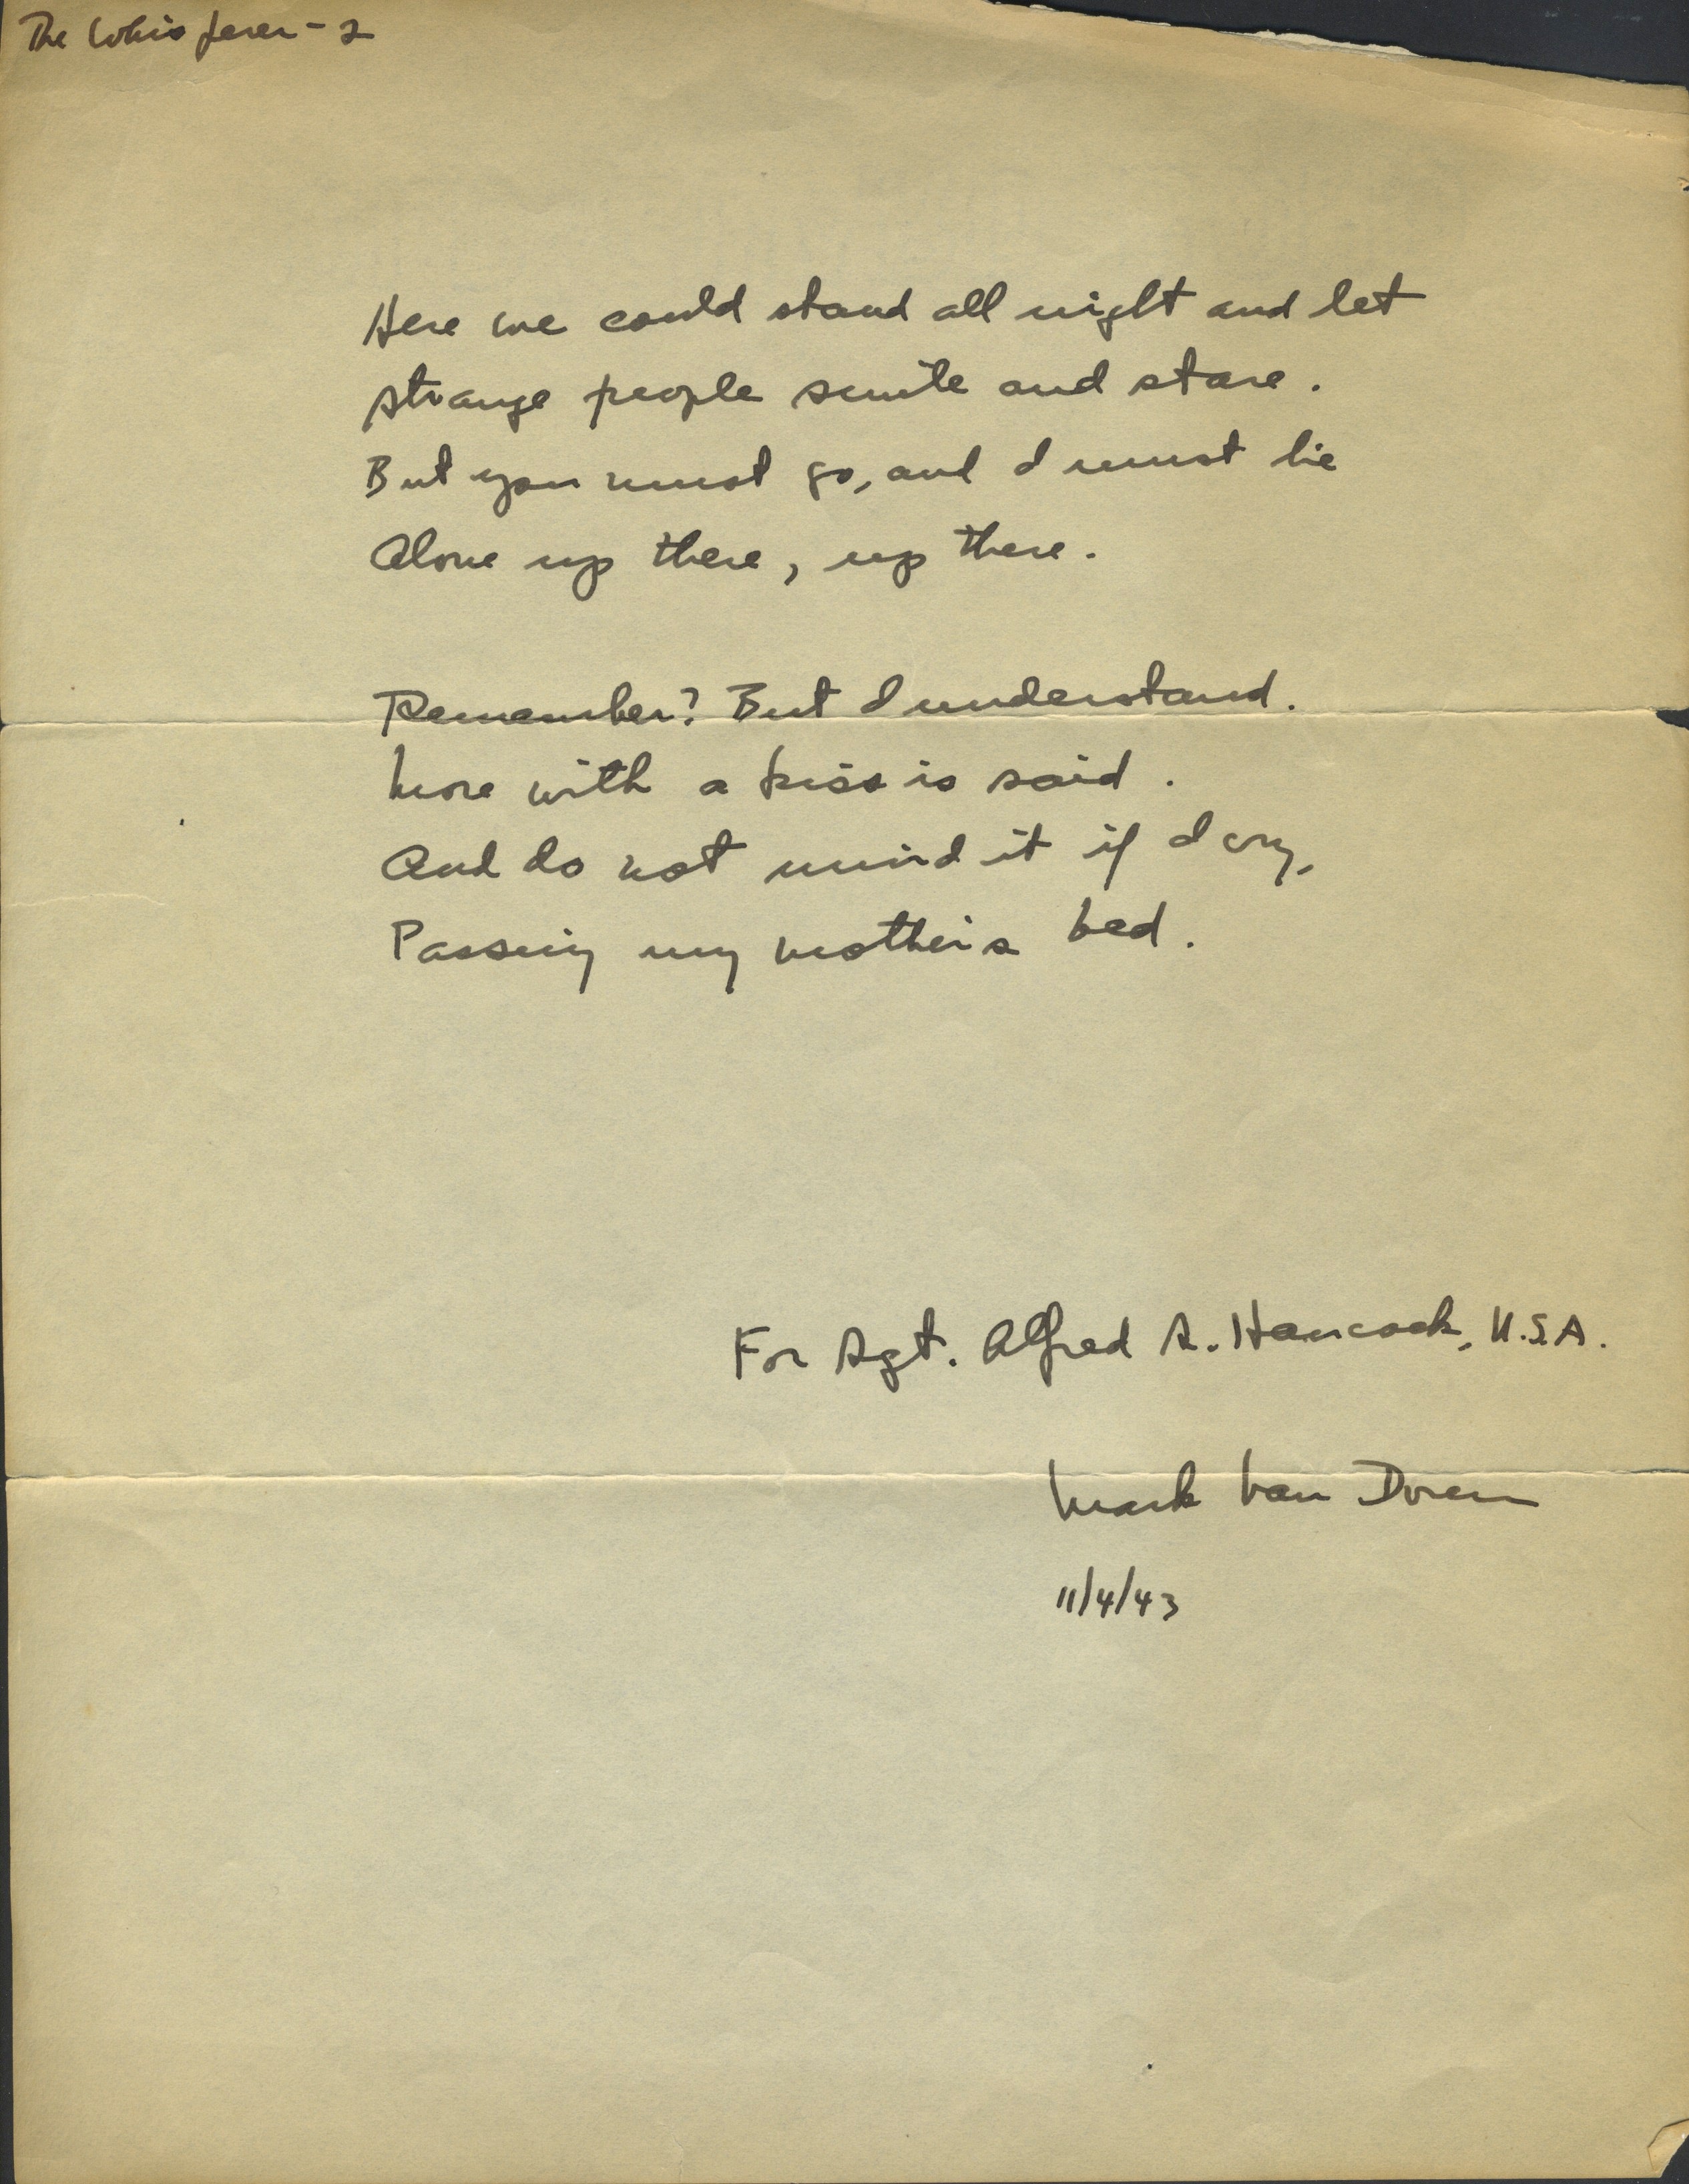 The Whisperer - 2
Here we could stand all night and let
strange people smile and stare.
But you must go, and I must lie
Alone up there, up there.
Remember? But I understand.
More with a kiss is said.
And do not mind it if I cry,
Passing my mother's bed.
For Sgt. Alfred A. Hancock, U.S.A.
Mark Van Doren
11/4/43